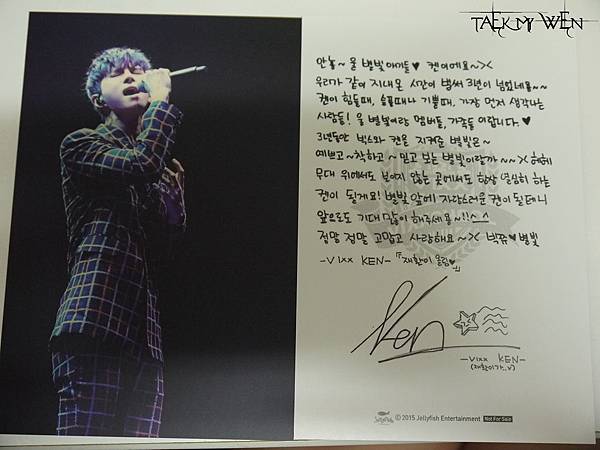 TALK MY WEN
안농~ 울 별빛아가들♥ 켄이에요~><
우리가 같이 지내온 시간이 벌써 3년이 넘었네용~~
켄이 힘들때, 슬플때나 기쁠때, 가장 먼저 생각나는
사람들! 울 별빛이랑 멤버들, 가족들 이랍니다.♥
3년동안 빅스와 켄을 지켜준 별빛은~
예쁘고~착하고~믿고 보는 별빛이랄까~~>< 헤헤
무대 위에서도 보이지 않는 곳에서도 항상 열심히 하는
켄이 될게요! 별빛 앞에 자랑스러운 켄이 될테니
앞으로도 기대 많이 해주세용~!!^_^
정말 정말 고맙고 사랑해요~>< 빅뀨♥별빛
-VIXX KEN- 『재환이 올림♥』
Ken
-VIXX KEN-
(재환이가..v)
Jellyfish © 2015 Jellyfish Entertainment Not For Sale